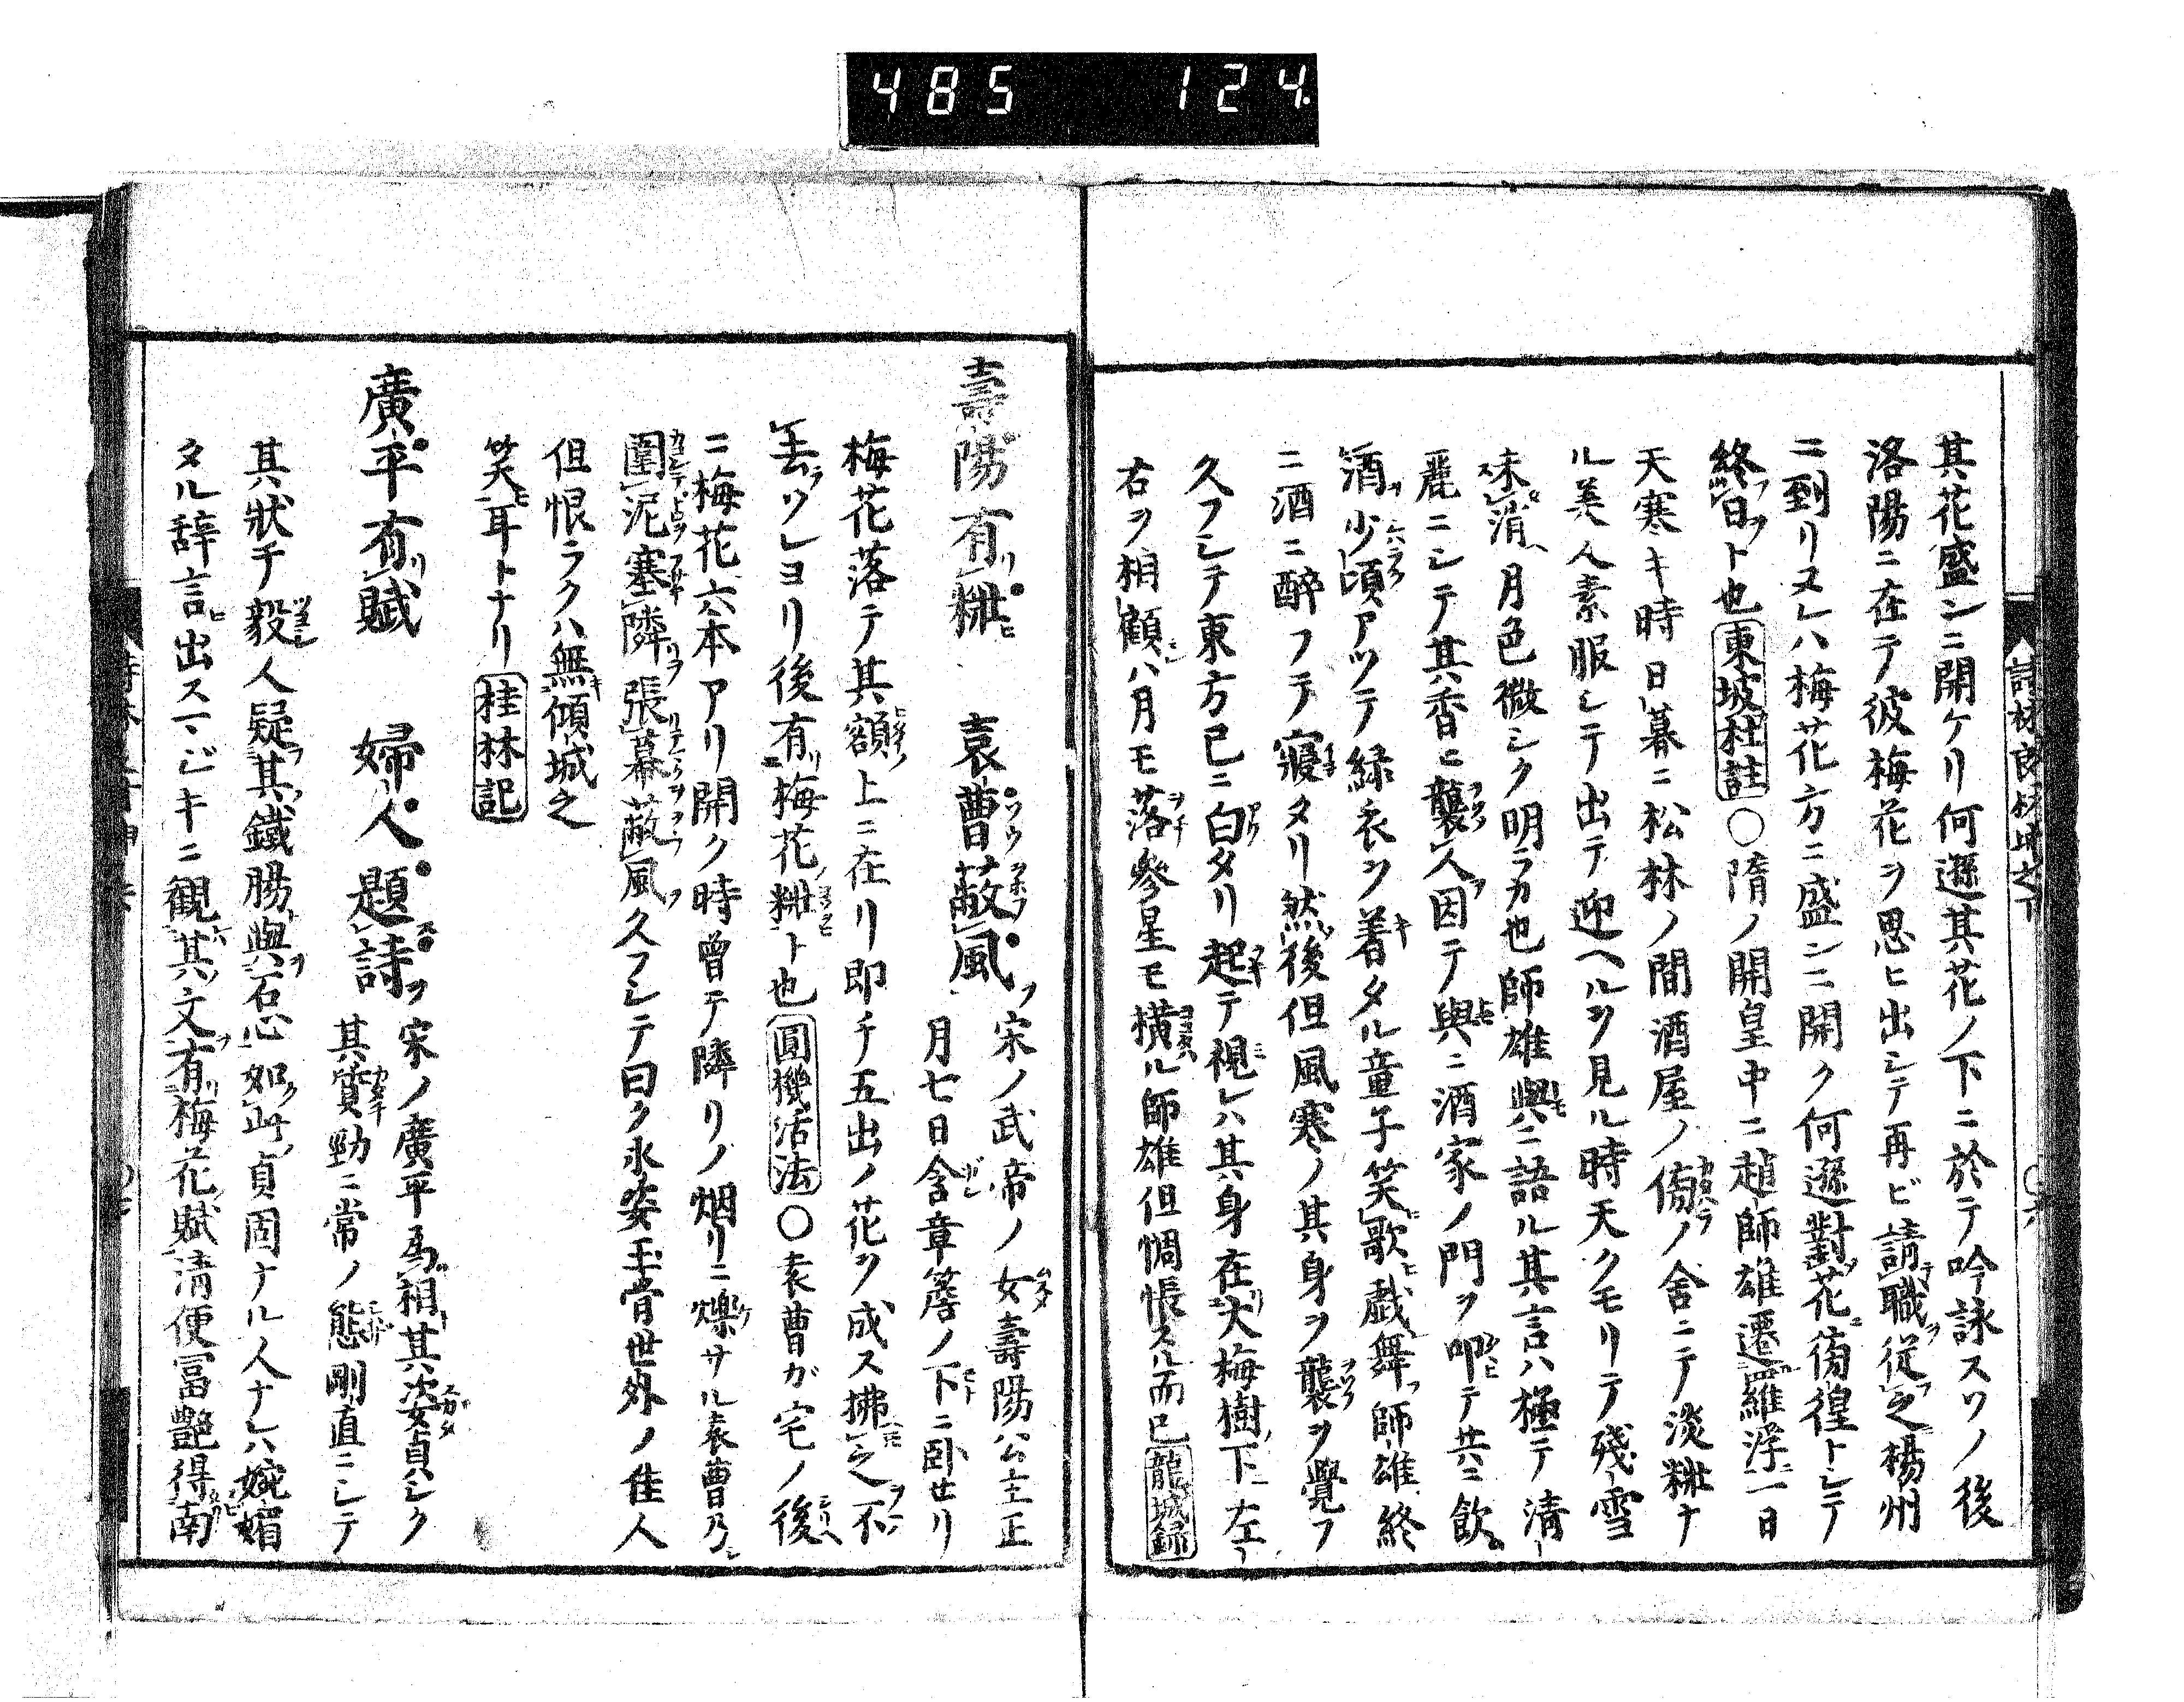 485 124.
其花盛ンニ開ケリ何遜其花ノ下ニ於テ吟詠スソノ後
洛陽ニ在テ彼梅花ヲ思ヒ出シテ再ビ請職從之楊州
ニ到リヌレハ梅花方ニ盛ンニ開ク何遜對花徬徨トシテ
終日ト也東坡杜註〇隋ノ開皇中ニ趙師雄遷羅浮一日
天寒キ時日暮ニ松林ノ間酒屋ノ傍ノ舍ニテ淡粧ナ
ル美人素服シテ出テ迎ヘルヲ見ル時天クモリテ殘雪
未消月色微シク明ラカ也師雄與ニ語ル其言ハ極テ清
麗ニシテ其香ヒ襲人因テ與ニ酒家ノ門ヲ叩テ共ニ飲
酒少頃アツテ緑衣ヲ着タル童子笑歌戯舞師雄終
ニ酒ニ醉フテ寢タリ然後但風寒ノ其身ヲ襲ヲ覺フ
久フシテ東方已ニ白タリ起テ視レハ其身在大梅樹下左
右ヲ相顧ハ月モ落參星モ横ル師雄但惆悵スル而已龍城録
壽陽有粧 袁曹蔽風
宋ノ武帝ノ女壽陽公主正
月七日含章簷ノ下ニ臥セリ
梅花落テ其額上ニ在リ即チ五出ノ花ヲ成ス拂之不
去ソレヨリ後有梅花粧ト也圓機活法〇袁曹ガ宅ノ後
ニ梅花六本アリ開ク時曾テ隣リノ烟リニ爍サル袁曹乃
圍泥塞隣張幕蔽風久フシテ曰ク氷姿玉骨世外ノ佳人
但恨ラクハ無傾城之
笑耳トナリ桂林記
廣平有賦 婦人題詩
宋ノ廣平爲相其姿貞シク
其質勁ニ常ノ態剛直ニシテ
其狀チ毅人疑其鐵腸與石心如此貞固ナル人ナレハ婉媚
タル辞言出スマジキニ觀其文有梅花賦清便冨艶得南